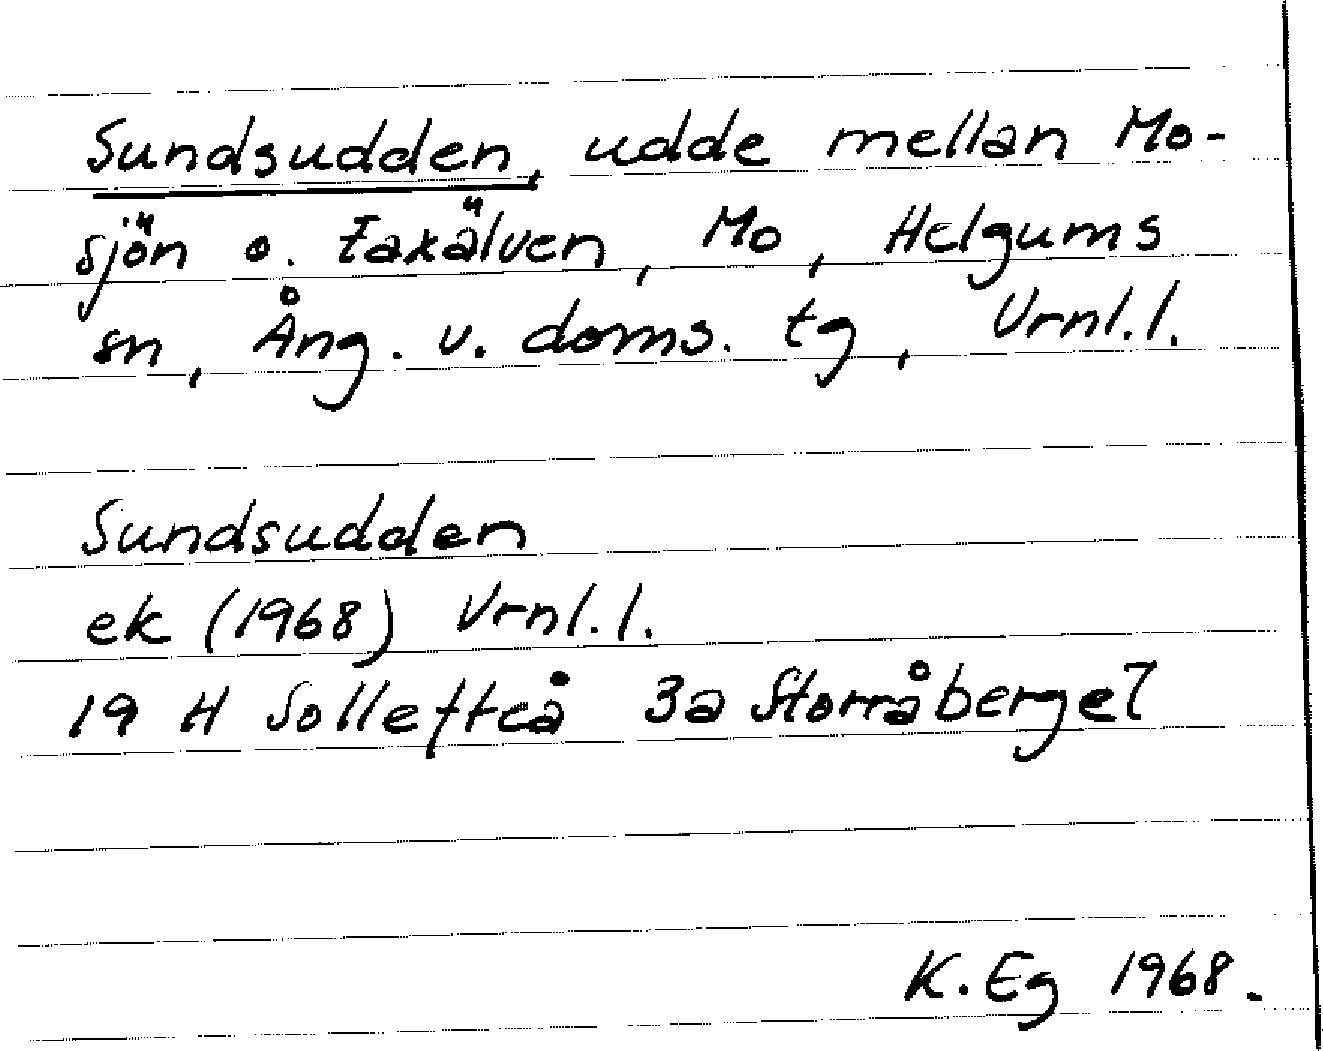 Sundsudden, udde mellan Mo-
sjön o. Faxälven, Mo, Helgums
sn, Ång. v. doms. tg, Vrnl. l.
Sundsudden
ek (1968) Vrnl. l.
19 H Sollefteå 3a Storråberget
K. Eg 1968.